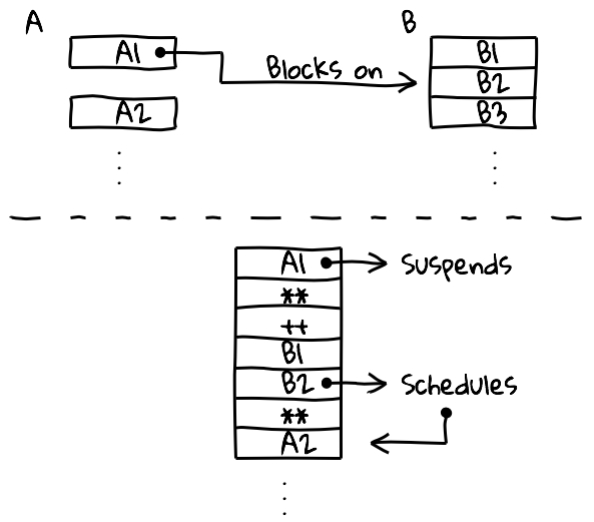 A
B
A1
Blocks on
B1
B2
B3
A2
A1
Suspends
**
++
B1
B2
Schedules
**
A2